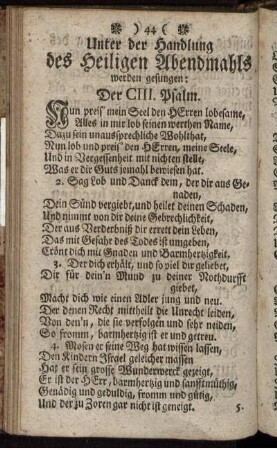 ) 44 (
Unter der Handlung
des Heiligen Abendmahls
werden gesungen:
Der CIII. Psalm.
Nun preis' mein Seel den HErren lobesame,
Alles in mir lob seinen werthen Name,
Dazu sein unaussprechliche Wohlthat,
Nun lob und preis' den HErren, meine Seele,
Und in Vergessenheit mit nichten stelle,
Was er dir Guts jemahl bewiesen hat.
2. Sag Lob und Danck dem, der dir aus Ge-
naden,
Dein Sünd vergiebt, und heilet deinen Schaden,
Und nimmt von dir deine Gebrechlichkeit,
Der aus Verderbniß dir errett dein Leben,
Das mit Gefahr des Todes ist umgeben,
Crönt dich mit Gnaden und Barmhertzigkeit.
3. Der dich erhält, und so viel dir geliebet,
Dir für dein'n Mund zu deiner Nothdurfft
giebet,
Macht dich wie einen Adler jung und neu.
Der denen Recht mittheilt die Unrecht leiden,
Von den'n, die sie verfolgen und sehr neiden,
So fromm, barmhertzig ist er und getreu.
4. Mosen er seine Weg hat wissen lassen,
Den Kindern Israel geleicher massen
Hat er sein grosse Wunderwerck gezeigt,
Er ist der HErr, barmhertzig und sanfftmüthig,
Genädig und geduldig, fromm und gütig,
Und der zu Zoren gar nicht ist geneigt.
5.